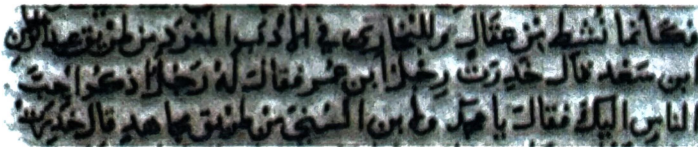 فكأنما نشط من عقال وللبخاري في الأدب المفرد من طريق عبد الرحمن
ابن سعد قال خدرت رجل ابن عمر فقال له رجل اذكر احب
الناس اليك فقال يا محمد ولابن السني من طريق مجاهد قال خدرت